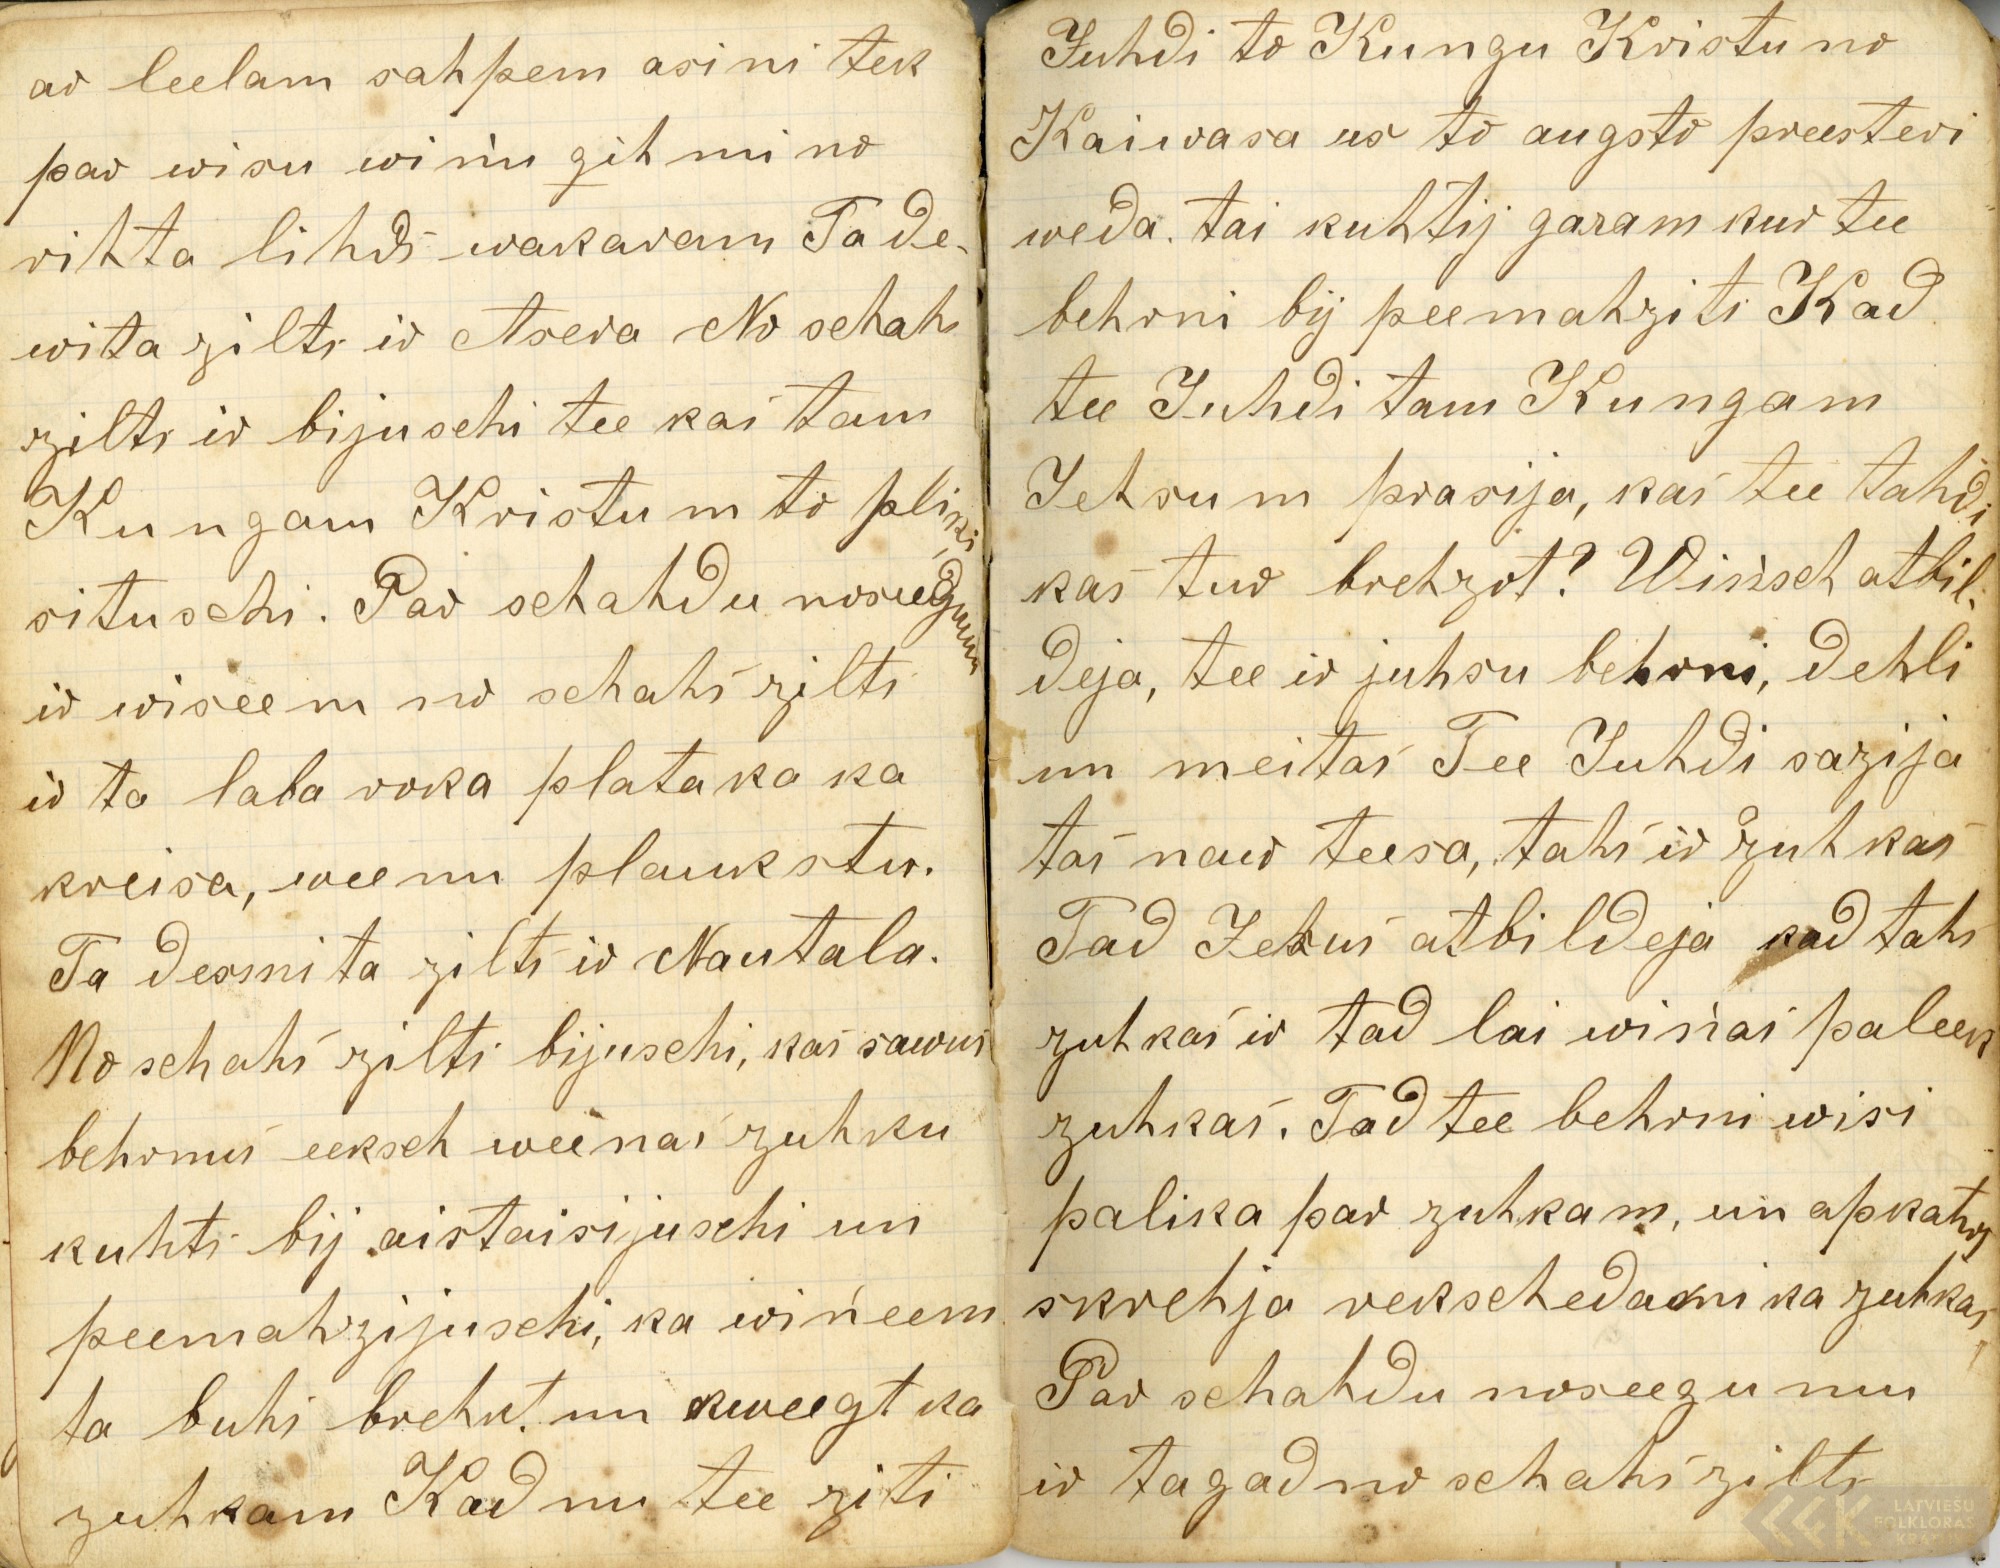 ar leelam sahpem asini tek
par wisu wiņu gihmi no
rihta lihds wakaram Ta de-
wita zilts ir Asera No schahs
zilts ir bijuschi tee kas tam
Kungam Kristum to pliķi
situschi. Par schahdu noseegumu
ir wiseem no schahs zilts
ir ta laba roka plataka ka
kreisa, weenu plaukstu.
Ta desmita zilts ir Nautala.
No schahs zilts bijuschi, kas sawus
behrnus eeksch weenas zuhku
kuhts bij aistaisijuschi un
peemahzijuschi, ka wiņeem
ta buhs brehkt un kweegt ka
zuhkam Kad nu tee ziti
Juhdi to Kungu Kristu no
Kaiwasa us to augsto preesteri
weda. tai kuhtij garam kur tee
behrni bij peemahziti Kad
tee Juhdi tam Kungam
Jehsum prasija, kas tee tahdi
kas tur brehzot? Wiņsch atbil-
deja, tee ir juhsu behrni, dehli
un meitas Tee Juhdi sazija
tas naw teesa, tahs ir zuhkas
Tad Jehsus atbildeja kad tahs
zuhkas ir tad lai wiņas paleek
zuhkas. Tad tee behrni wisi
palika par zuhkam, un apkahrt
skrehja rekschedami ka zuhkas
Par schahdu noseegumu
ir tagad no schahs zilts
LATVIEŠU
FOLKLORAS